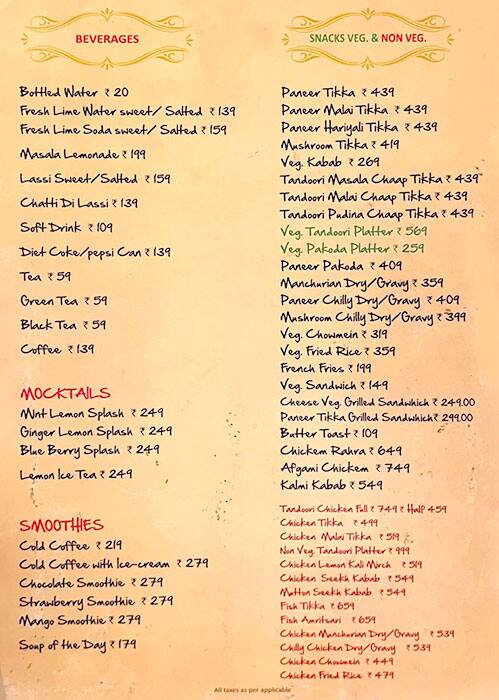 BEVERAGES
Bottled Water ₹ 20
Fresh Lime Water sweet/ Salted ₹ 139
Fresh Lime Soda sweet/ Salted ₹ 159
Masala Lemonade ₹ 199
Lassi Sweet/Salted ₹ 159
Chatti Di Lassi ₹ 139
Soft Drink ₹ 109
Diet Coke/pepsi Can ₹ 139
Tea ₹ 59
Green Tea ₹ 59
Black Tea ₹ 59
Coffee ₹ 139
MOCKTAILS
Mint Lemon Splash ₹ 249
Ginger Lemon Splash ₹ 249
Blue Berry Splash ₹ 249
Lemon Ice Tea ₹ 249
SMOOTHIES
Cold Coffee ₹ 219
Cold Coffee with Ice-cream ₹ 279
Chocolate Smoothie ₹ 279
Strawberry Smoothie ₹ 279
Mango Smoothie ₹ 279
Soup of the Day ₹ 179
SNACKS VEG. & NON VEG.
Paneer Tikka ₹ 439
Paneer Malai Tikka ₹ 439
Paneer Hariyali Tikka ₹ 439
Mushroom Tikka ₹ 419
Veg. Kabab ₹ 269
Tandoori Masala Chaap Tikka ₹ 439
Tandoori Malai Chaap Tikka ₹ 439
Tandoori Pudina Chaap Tikka ₹ 439
Veg. Tandoori Platter ₹ 569
Veg. Pakoda Platter ₹ 259
Paneer Pakoda ₹ 409
Manchurian Dry/Gravy ₹ 359
Paneer Chilly Dry/Gravy ₹ 409
Mushroom Chilly Dry/Gravy ₹ 399
Veg. Chowmein ₹ 319
Veg. Fried Rice ₹ 359
French Fries ₹ 199
Veg. Sandwich ₹ 149
Cheese Veg. Grilled Sandwhich ₹ 249.00
Paneer Tikka Grilled Sandwhich ₹ 299.00
Butter Toast ₹ 109
Chickem Rahra ₹ 649
Afgami Chickem ₹ 749
Kalmi Kabab ₹ 549
Tandoori Chicken Full ₹ 749 ₹ Half 459
Chicken Tikka ₹ 499
Chicken Malai Tikka ₹ 519
Non Veg. Tandoori Platter ₹ 999
Chicken Lemon Kali Mirch ₹ 519
Chicken Seekh Kabab ₹ 549
Mutton Seekh Kabab ₹ 549
Fish Tikka ₹ 659
Fish Amritsari ₹ 659
Chicken Manchurian Dry/Gravy ₹ 539
Chilly Chicken Dry/Gravy ₹ 539
Chicken Chowmein ₹ 449
Chicken Fried Rice ₹ 479
All taxes as per applicable